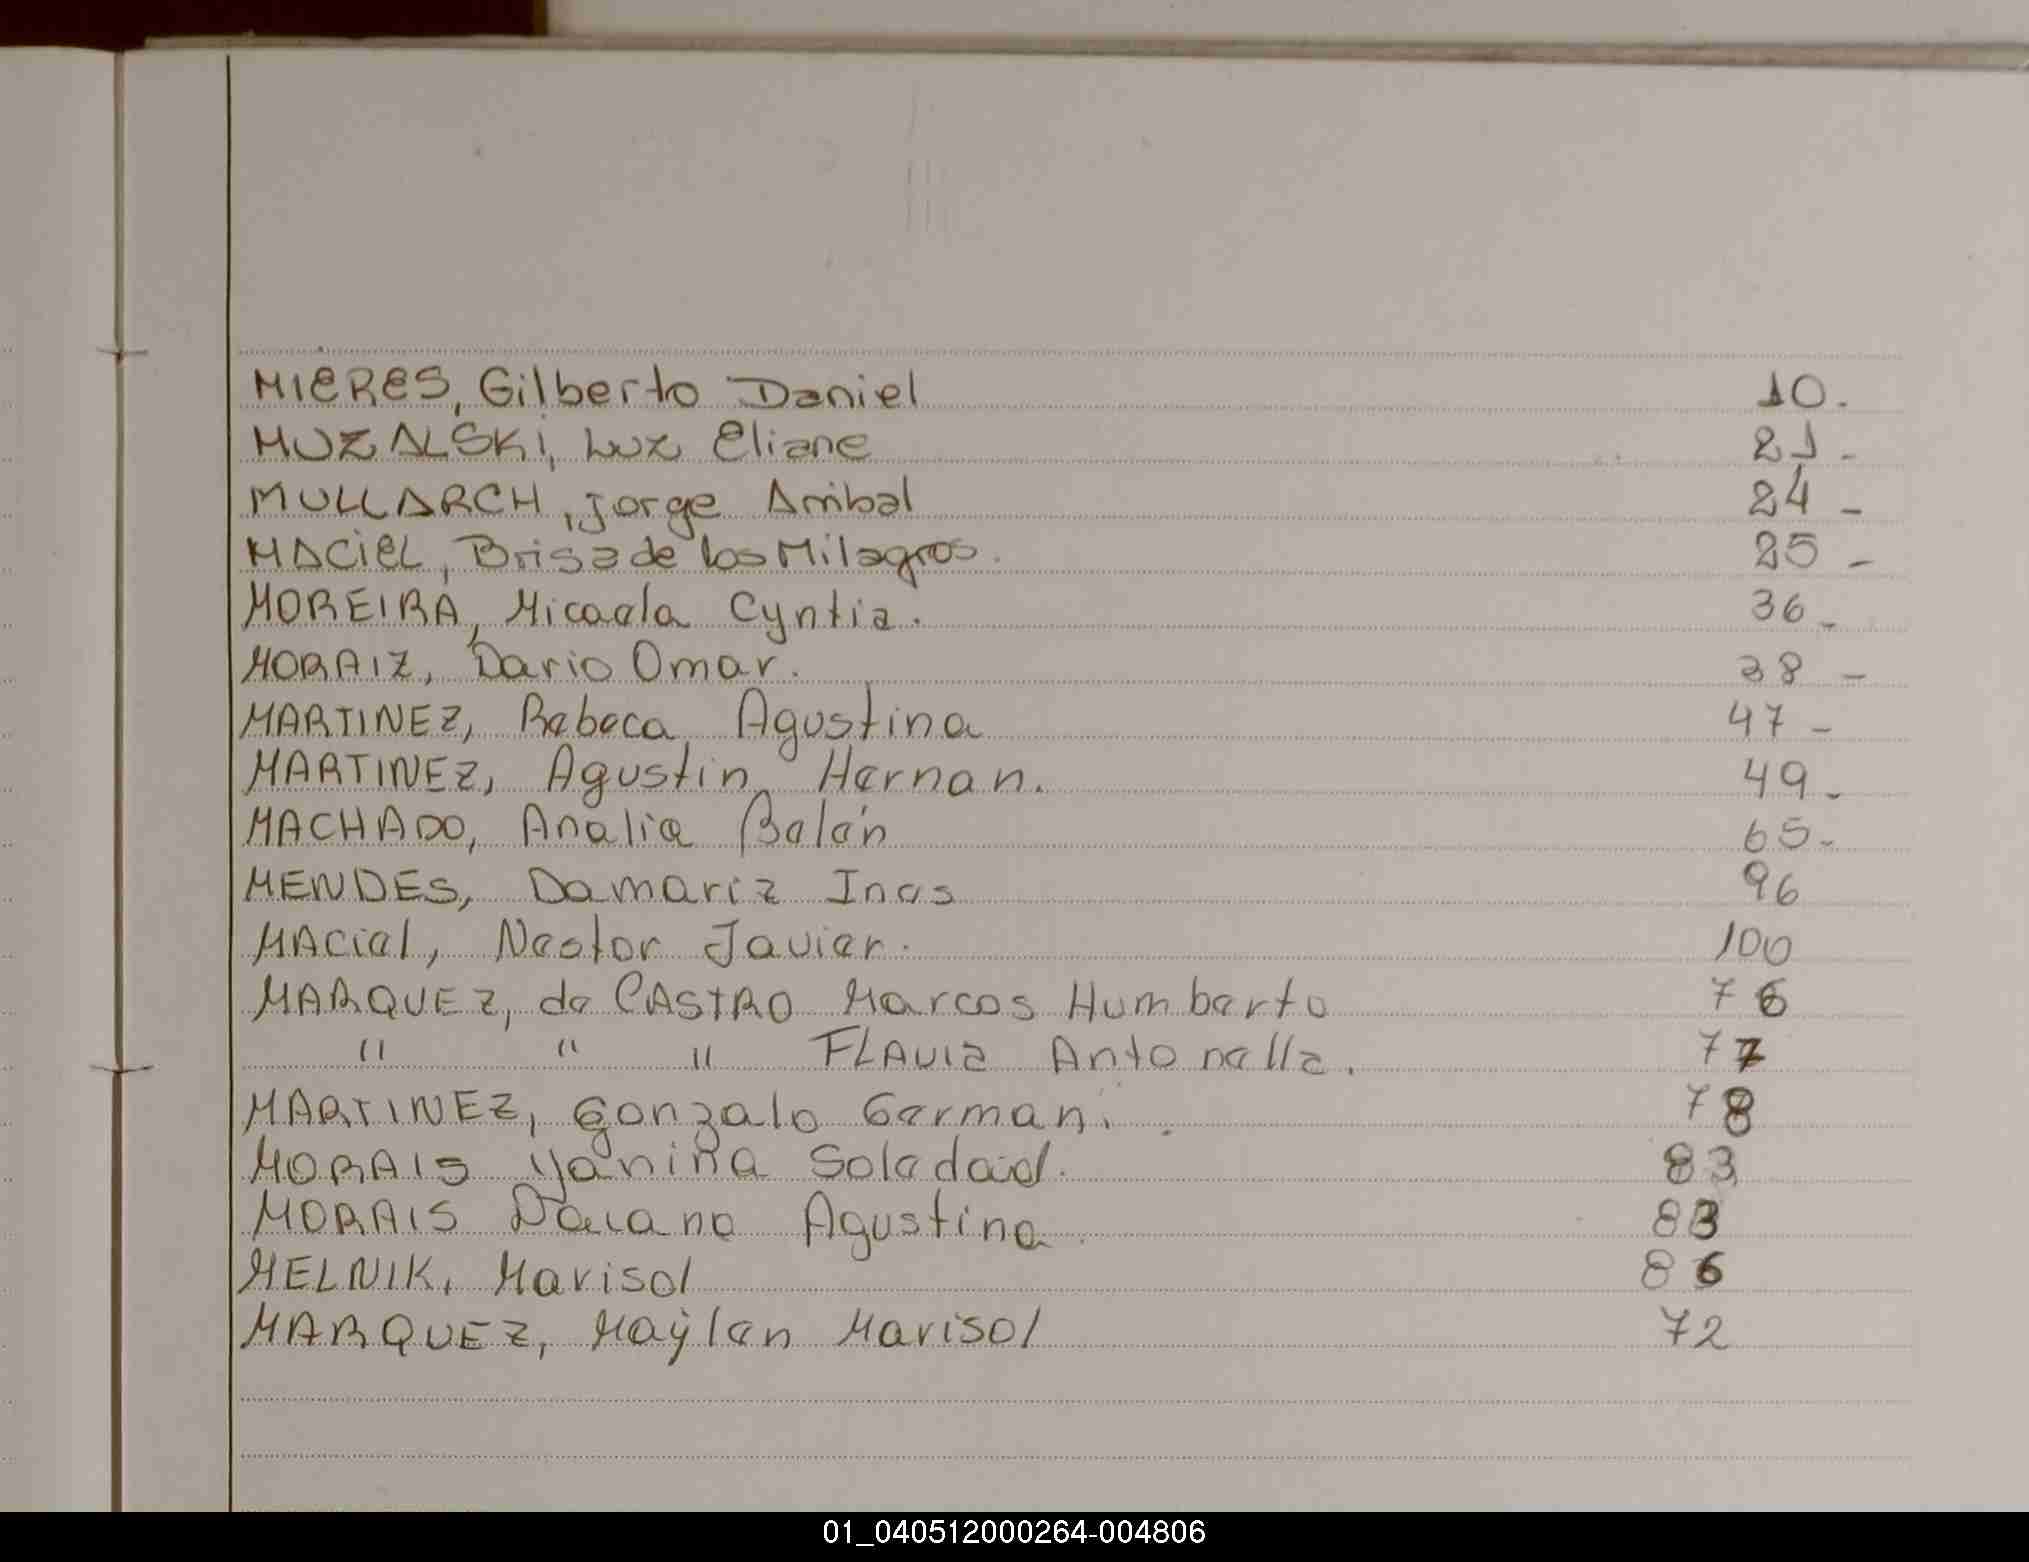 MIERES, Gilberto Daniel 10.
MUZALSKI, Luz Eliane 21-
MULLARCH, Jorge Anibal 24-
MACIEL, Brisa de los Milagros. 25-
MOREIRA, Micaela Cyntia. 36-
MORAIZ, Dario Omar. 38-
MARTINEZ, Rebeca Agustina 47-
MARTINEZ, Agustin Hernan. 49-
MACHADO, Analia Belén 65-
MENDES, Damariz Ines 96
MAciel, Nestor Javier. 100
MARQUEZ, de CASTRO Marcos Humberto 76
" " " FLAVIA Antonella. 77
MARTINEZ, Gonzalo German. 78
MORAIS Yanina Soledad. 83
MORAIS Daiana Agustina. 83
MELNIK, Marisol 86
MARQUEZ, Maylen Marisol 72
01_040512000264-004806